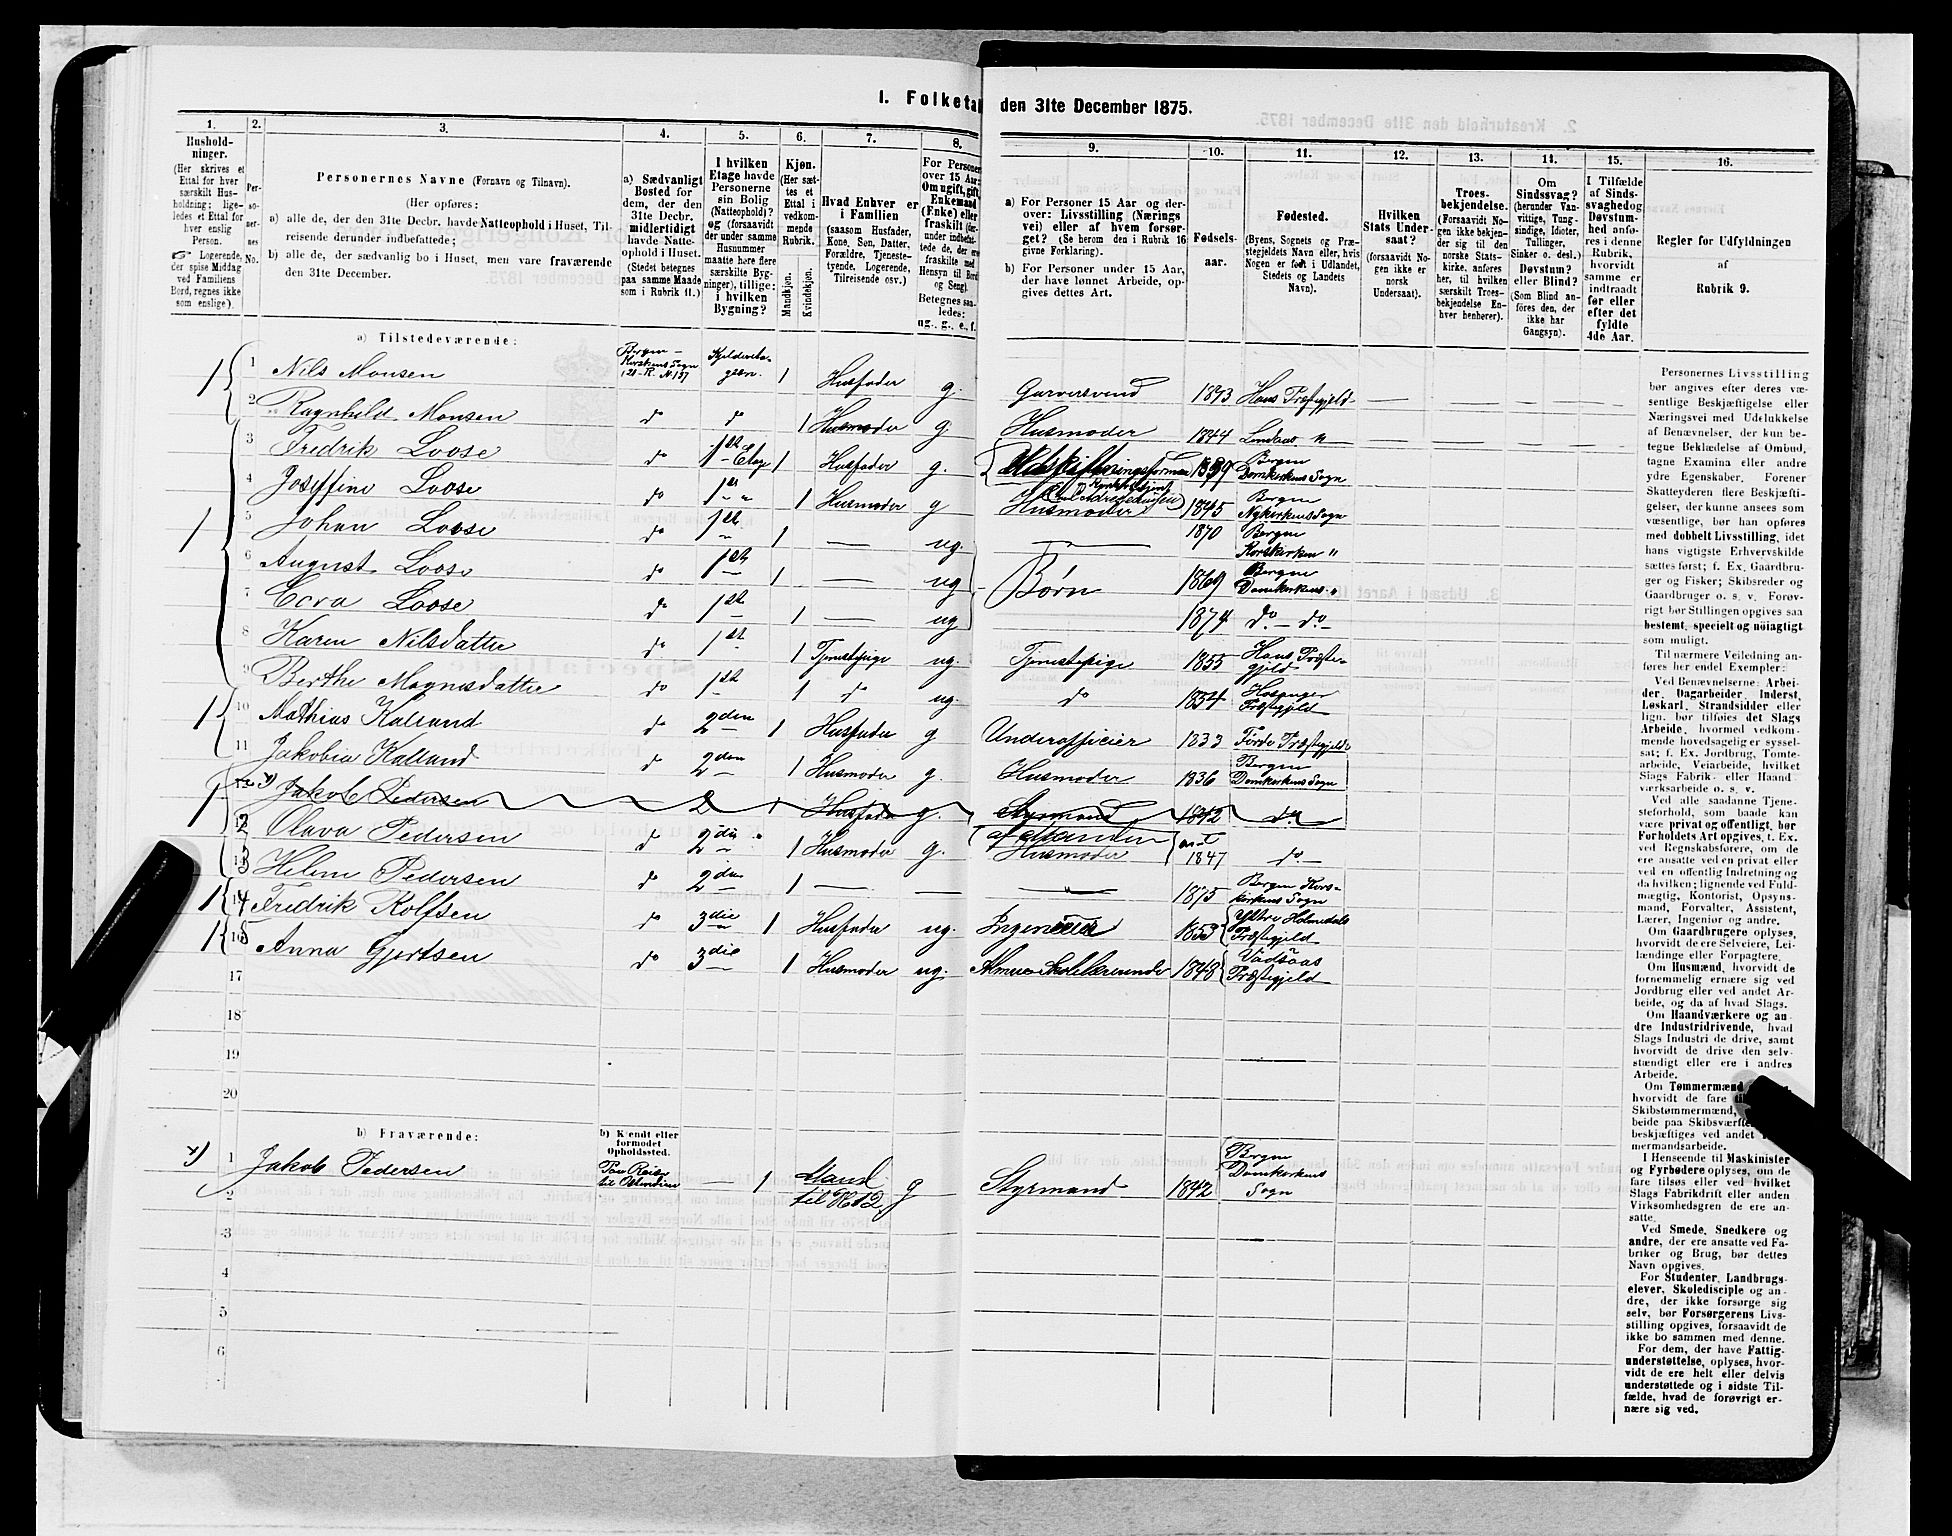 I. Folketa den 31te December 1875.
1. 2. 3. 4. 5. 6. 7. 8. 9. 10. 11. 12. 13. 14. 15. 16.
Hushold-
ninger.
(Her skrives et
Ettal for hver
særskilt Hus-
holdning; lige-
ledes et Ettal for
hver enslig
Person.
☞ Logerende,
der spise Middag
ved Familiens
Bord, regnes ikke
som enslige).
Per-
so-
ner-
nes
No.
Personernes Navne (Fornavn og Tilnavn).
(Her opføres:
a) alle de, der den 31te Decbr. havde Natteophold i Huset, Til-
reisende derunder indbefattede;
b) alle de, der sædvanlig bo i Huset, men vare fraværende
den 31te December.
a) Sædvanligt
Bosted for
dem, der den
31te Decbr.
midlertidigt
havde Natte-
ophold i Huset.
(Stedet betegnes
paa samme Maade
som i Rubrik 11.)
I hvilken
Etage havde
Personerne
sin Bolig
(Natteophold)?
og (forsaavidt
der under samme
Husnummer
maatte høre flere
særskilte Byg-
ninger), tillige:
i hvilken
Bygning?
Kjøn.
(Her sæt-
tes et
Ettal i
vedkom-
mende
Rubrik.
Mandkjøn.
Kvindekjøn.
Hvad Enhver er
i Familien
(saasom Husfader,
Kone, Søn, Datter,
Forældre, Tjeneste-
tyende, Logerende,
Tilreisende osv.)
For Personer
over 15 Aar:
Om ugift, gift,
Enkemand
(Enke) eller
fraskilt (der-
under indbefat-
tede de, der ere
fraskilte med
Hensyn til Bord
og Seng).
Betegnes saa-
ledes:
ug., g., e., f.
a) For Personer 15 Aar og der-
over: Livsstilling (Nærings
vei) eller af hvem forsør-
get? (Se herom den i Rubrik 16
givne Forklaring).
b) For Personer under 15 Aar,
der have lønnet Arbeide, op-
gives dettes Art.
Fødsels-
aar.
Fødested.
(Byens, Sognets og Præ-
stegjeldets Navn eller, hvis
Nogen er født i Udlandet,
Stedets og Landets
Navn).
Hvilken
Stats Under-
saat?
(forsaavidt No-
gen ikke er
norsk
Undersaat).
Troes-
bekjendelse.
(Forsaavidt No-
gen ikke bekjen-
der sig til den
norske Stats-
kirke, anføres
her, til hvilken
særskilt Troes-
bekjendelse En-
hver henhører).
Om
Sindssvag?
(herunder Van-
vittige, Tung-
sindige, Idioter,
Tullinger,
Sinker o. desl.)
Døvstum?
eller Blind?
(Som Blind an-
føres den, der
ikke har
Gangsyn).
I Tilfælde
af Sinds-
svaghed og
Døvstum-
hed anfø-
res i denne
Rubrik,
hvorvidt
samme er
indtraadt
før eller
efter det
fyldte
4de Aar.
Regler for Udfyldningen
af
Rubrik 9.
a) Tilstedeværende:
1 1 Nils Monsen Bergen - Korskirkens Sogn 121-R. N 137 Kjelderetagen. 1 Husfader g. Garversvend 1843 Haus Præstegjeld
2 Ragnhild Monsen do do 1 Husmoder g. Husmoder 1844 Lindaas "
1 3 Fredrik Loose do 1ste Etage 1 Husfader g. 1839 Bergen Domkirkens Sogn
4 Josefine Loose do 1ste 1 Husmoder g Husmoder 1845 Bergen Nykirkens Sogn
5 Johan Loose do 1ste 1 — ug. 1870 Bergen Korskirken "
6 August Loose do 1ste 1 — ug Børn 1869 Bergen Domkirkens "
7 Loose do 1ste 1 — ug 1874 do - do -
8 Karen Nilsdatter do 1ste 1 Tjenestepige ug. Tjenestepige 1855 Haus Præstegjeld
9 Berthe Magnesdatter do 1ste 1 do ug. do 1854 Hosanger Præstegjeld
1 10 Mathias Kalland do 2den 1 Husfader g Underofficier 1833 Førde Præstegjeld
11 Jakobia Kalland do 2den 1 Husmoder g. Husmoder 1836 Bergen Domkirkens Sogn
1 x) Jakob Pedersen 2 1 Husfader g. Styrmand 1842 do
12 Olava Pedersen do 2den 1 Husmoder g. af Manden Husmoder 1847 do -
13 Helene Pedersen do 2den 1 — — — 1875 Bergen Korskirkens Sogn
1 14 Fredrik Rolfsen do 3die 1 Husfader ug. Ingeniør 1853 Yttre Holmedals Præstegjeld
1 15 Anna Gjertsen do 3die 1 Husmoder ug. Almueskolelærerinde 1848 Vadsøas Præstegjeld
17
18
19
20
b) Fraværende:
b) Kjendt eller
formodet
Opholdssted.
x) 1 Jakob Pedersen Paa Reise til Ostindien — 1 Mand til N 12 g Styrmand 1842 Bergen Domkirkens Sogn
2
3
4
5
6
Personernes Livsstilling
bør angives efter deres væ-
sentlige Beskjæftigelse eller
Næringsvei med Udelukkelse
af Benævnelser, der kun be-
tegne Beklædelse af Ombud,
tagne Examina eller andre
ydre Egenskaber. Forener
Skatteyderen flere Beskjæfti-
gelser, der kunne ansees som
væsentlige, bør han opføres
med dobbelt Livsstilling, idet
hans vigtigste Erhvervskilde
sættes først; f. Ex. Gaardbru-
ger og Fisker; Skibsreder og
Gaardbruger o. s. v. Forøv-
rigt bør Stillingen opgives saa
bestemt, specielt og nøiagtigt
som muligt.
Til nærmere Veiledning an-
føres her endel Exempler:
Ved Benævnelserne: Arbei-
der, Dagarbeider, Inderst,
Løskarl, Strandsidder eller
lign. bør tilføies det Slags
Arbeide, hvormed vedkom-
mende hovedsagelig er syssel-
sat; f. Ex. Jordbrug, Tomte-
arbeide, Veiarbeide, hvilket
Slags Fabrik- eller Haand
værksarbeide o. s. v.
Ved alle saadanne Tjene-
steforhold, som baade kan
være privat og offentligt, bør
Forholdets Art opgives, t. Ex.
ved Regnskabsførere, om de
ere ansatte ved en privat eller
ved en offentlig Indretning og
da hvilken; lignende ved Fuld-
mægtig, Kontorist, Opsyns-
mand, Forvalter, Assistent,
Lærer, Ingeniør og andre.
Om Gaardbrugere oplyses,
hvorvidt de ere Selveiere, Lei-
lændinge eller Forpagtere.
Om Husmænd, hvorvidt de
fornemmelig ernære sig ved
Jordbrug eller ved andet Ar-
beide, og da af hvad Slags.
Om Haandværkere og an
dre Industridrivende, hvad
Slags Industri de drive, samt
hvorvidt de drive den selv-
stændigt eller ere i andres
Arbeide.
Om Tømmermænd
hvorvidt de fare
Skibstømmermænd,
beide paa Skibsværfte
beskjæftiges ved andet
mermandsarbeide.
I Henseende til Maskinister
og Fyrbødere oplyses, om de
fare tilsøs eller ved hvilket
Slags Fabrikdrift eller anden
Virksomhedsgren de ere an-
satte.
Ved Smede, Snedkere og
andre, der ere ansatte ved Fa-
briker og Brug, bør dettes
Navn opgives.
For Studenter, Landbrugs-
elever, Skoledisciple og an-
dre, der ikke forsørge sig
selv, bør Forsørgerens Livs-
stilling opgives, forsaavidt de
ikke bo sammen med denne.
For dem, der have Fattig-
understøttelse, oplyses, hvor-
vidt de ere helt eller delvis
understøttede og i sidste Til-
fælde, hvad de forøvrigt er-
nære sig ved.